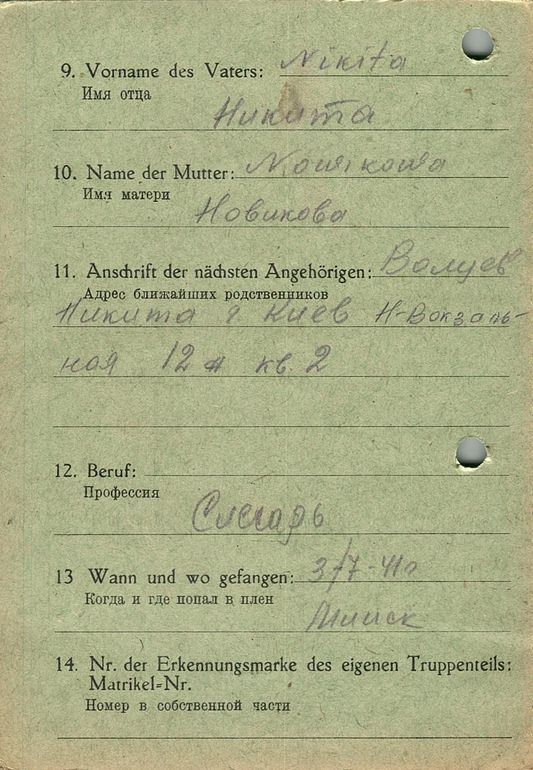 9. Vorname des Vaters: Nikita
Имя отца
Никита
10. Name der Mutter: Nowikowa
Имя матери
Новикова
11. Anschrift der nächsten Angehörigen: Валуев
Адрес ближайших родственников
Никита г Киев Н-Вокзаль-
ная 12а кв. 2
12. Beruf:
Профессия
Слесарь
13 Wann und wo gefangen: 3/7-41г
Когда и где попал в плен
Минск
14. Nr. der Erkennungsmarke des eigenen Truppenteils:
Matrikel=Nr.
Номер в собственной части